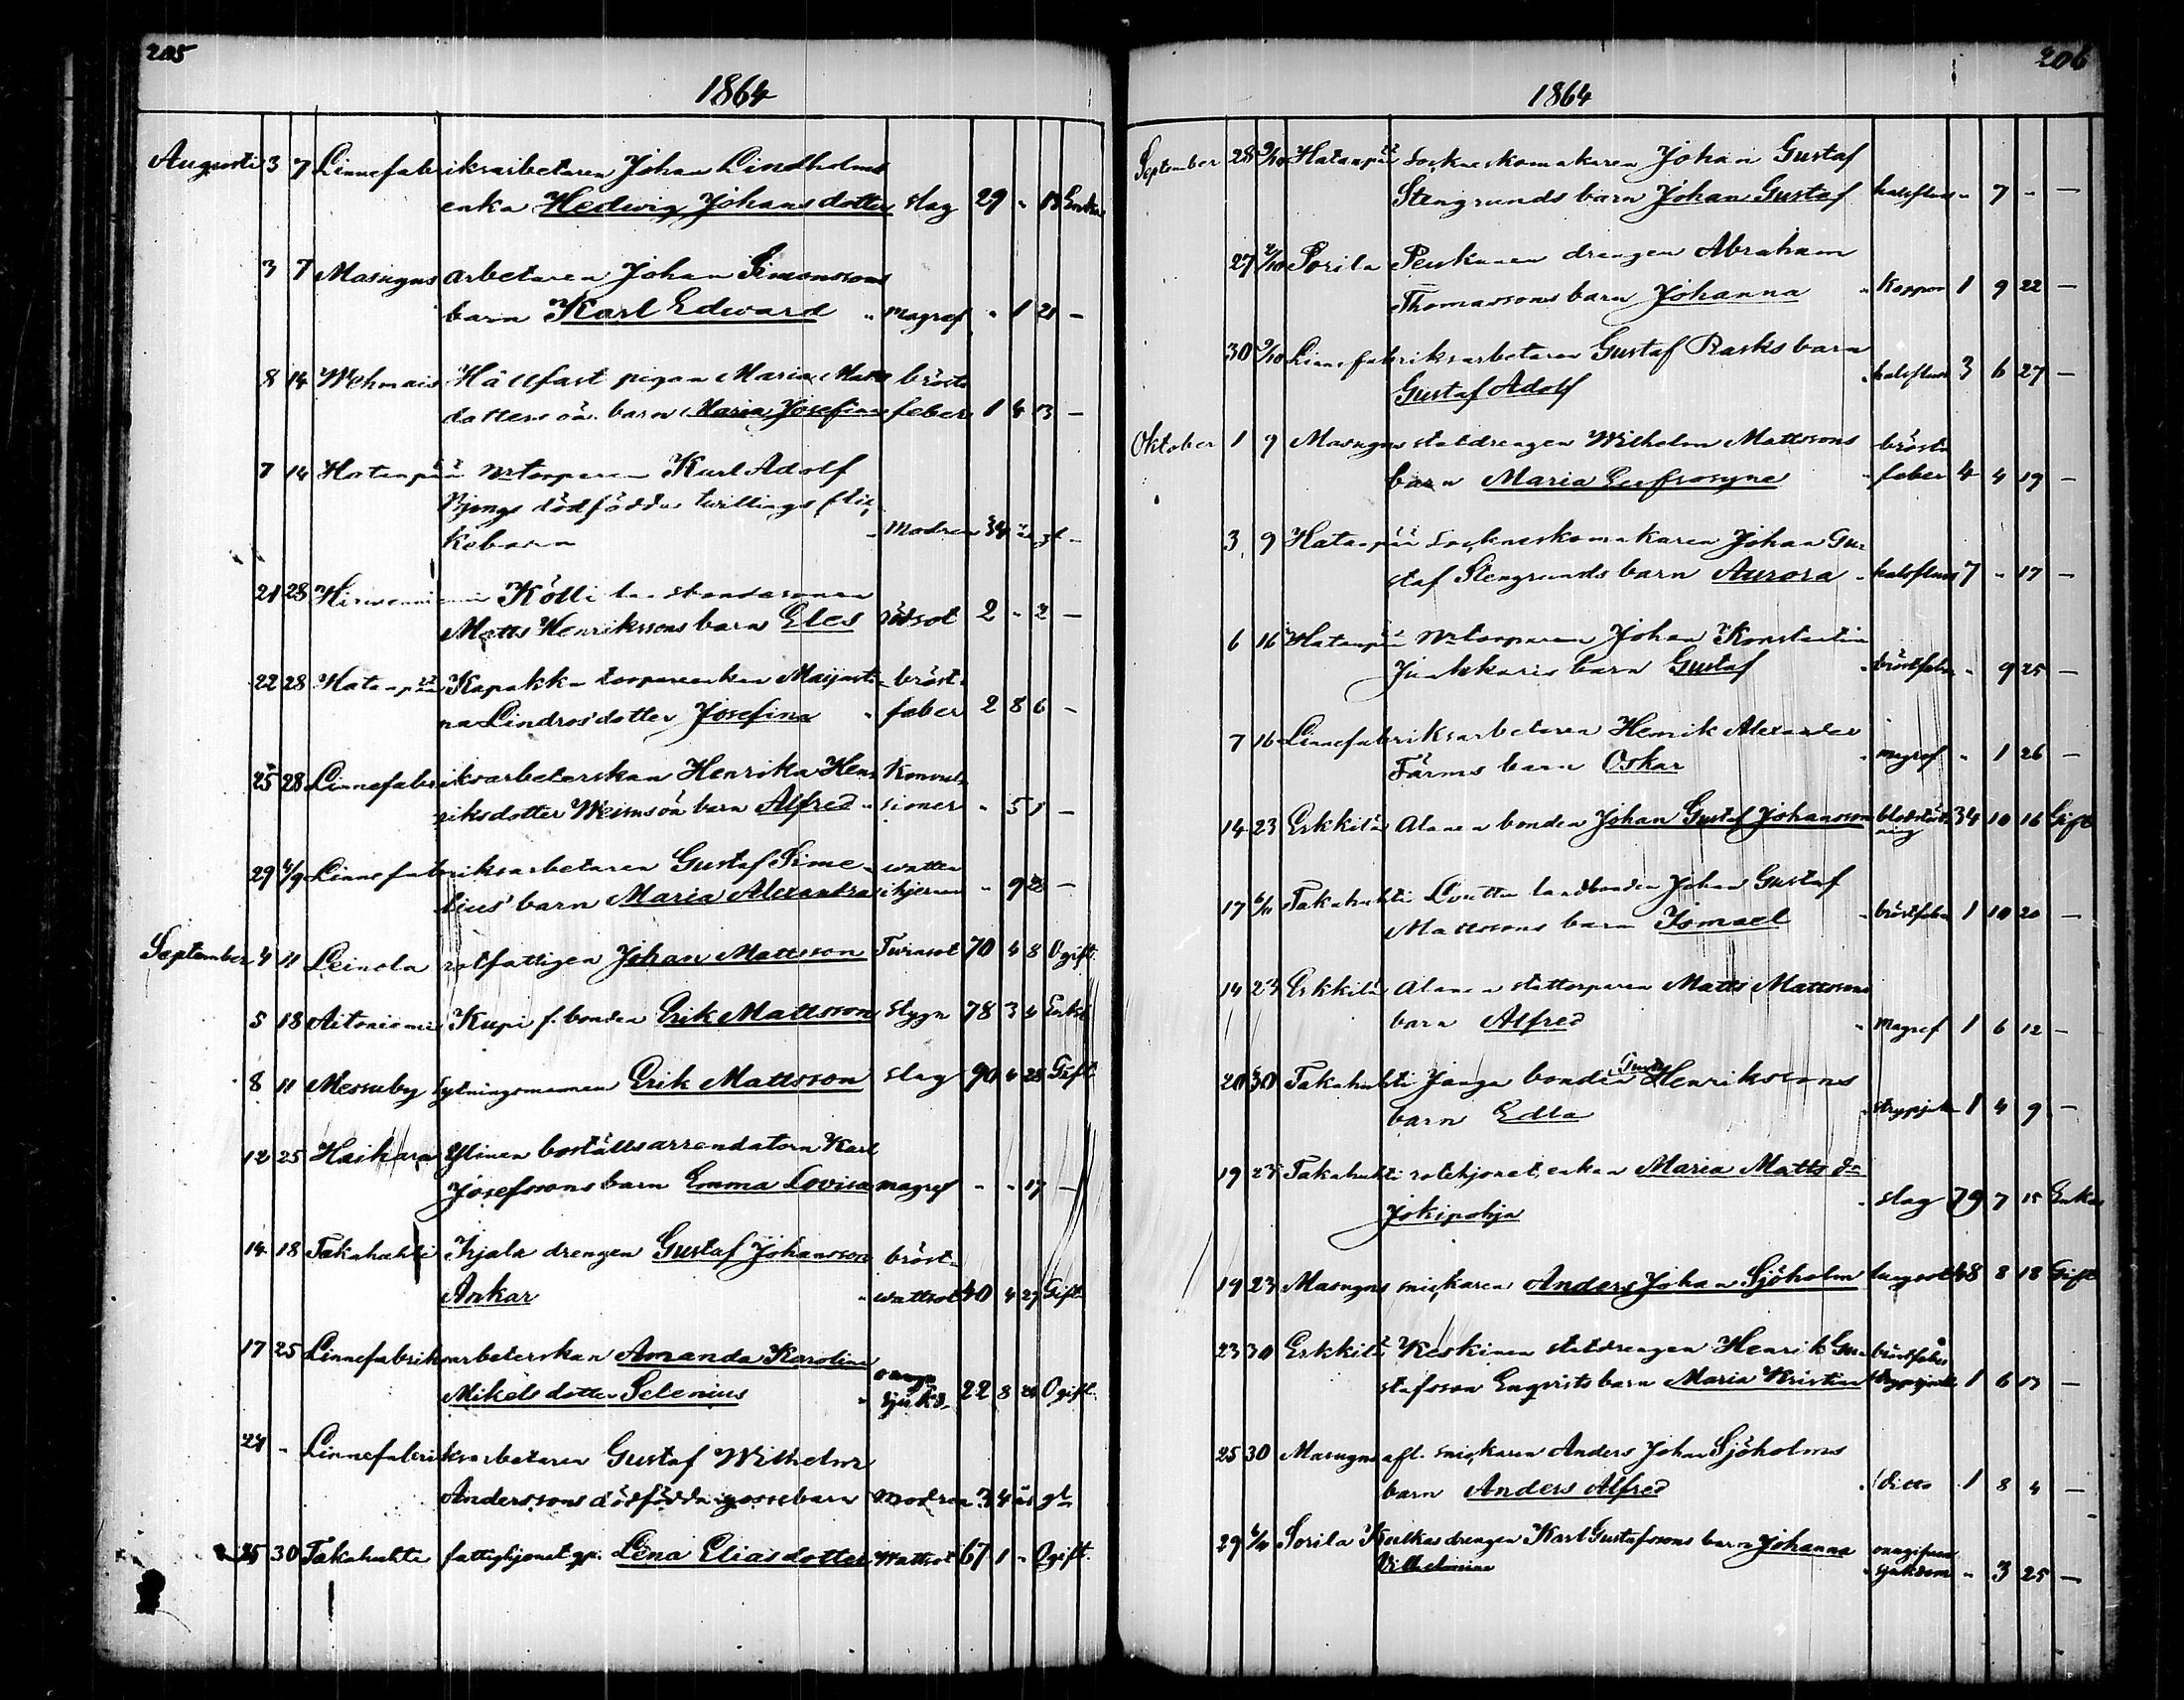 205
1864
Augusti 3 7 Linnefabriksarbetaren Johan Lindholms
enka Hedwig Johansdotter slag 29 - 18 Enka
3 7 Masugns arbetaren Johan Simonssons
barn Karl Edward " magref " 1 21 -
8 14 Wehmais Hällfast pigan Maria Matts bröst-
dotters oä. barn Maria Josefina feber 1 4 13 -
7 14 Hatanpää Torparen Karl Adolf
Bjengs dödfödda twillings flic-
kebarn - Modren 34 år gl -
21 28 Kölli landbondesonen
Matts Henrikssons barn Eles rödsot 2 - 2 -
22 28 Hatanpää Kapakka torpareenkan Maijasti- bröst-
na Lindrosdotter Josefina " feber 2 8 6 -
25 28 Linnefabriksarbeterskan Henrika Hen- Konvul-
riksdotter oä barn Alfred " sioner " 5 1 -
29 4/9 Linnefabriksarbetaren Gustaf Sime- watten
lius' barn Maria Alexandra i hjernan " 9 -
September 4 11 Leinola rotfattigen Johan Mattsson Twinsot 70 4 8 Ogift.
5 18 Aitoniemi Kupi f. bonden Erik Mattsson stygn 78 3 4 Enkl
8 11 Messuby Sytningsmannen Erik Mattsson slag 90 4 28 Gift
12 25 Haihara Ylinen boställsarrendatorn Karl
Josefssons barn Emma Lovisa magref - - 17 -
14 18 Takahuhti Kjala drengen Gustaf Johansson bröst-
Ankar " wattsot 40 4 27 Gift
17 25 Linnefabriksarbeterskan Amanda Karolina
Mikelsdotter Selenius " sjukd. 22 8 Ogift.
24 - Linnefabriksarbetaren Gustaf Wilhelm
Anderssons dödfödda gossebarn Modren 34 år gl
25 30 Takahuhti fattighjonet Lena Eliasdotter Wattsot 67 1 - Ogift.
206
1864
September 28 9/10 Hatanpää Sockneskomakaren Johan Gustaf
Stengrunds barn Johan Gustaf halsfluss " 7 - -
27 2/10 Sorila Penkanen drengen Abraham
Thomassons barn Johanna " Koppor 1 9 22 -
30 9/10 Linnefabriksarbetaren Gustaf Rasks barn
Gustaf Adolf " halsfluss 3 6 27 -
Oktober 1 9 Masugns statdrengen Wilhelm Mattssons bröst-
barn Maria Eufrosyne " feber 4 4 19 -
3 9 Hatanpää Sockneskomakaren Johan Gu-
staf Stengrunds barn Aurora " halsfluss 7 - 17 -
6 16 Hatanpää Torparen Johan Konstantin
Junkkaris barn Gustaf " bröstfeber " 9 25 -
7 16 Linnefabriksarbetaren Henrik Alexander
Färms barn Oskar " magref " 1 26 -
14 23 Erkkilä Alanen bonden Johan Gustaf Johansson blodstört- 34 10 16 Gift
ning
17 6/11 Takahuhti Loutta landbonden Johan Gustaf
Mattssons barn Ismael " bröstfeber 1 10 20 -
14 23 Erkkilä Alanen stattorparen Matts Mattssons
barn Alfred " Magref 1 6 12 -
20 30 Takahuhti Janga bonden Gustaf Henrikssons
barn Edla " strypsjuka 1 4 9 -
19 23 Takahuhti rotehjonet, enkan Maria Matts d:r
Jokipohja " slag 79 7 15 Enka
19 23 Masugns snickaren Anders Johan Sjöholm lungsot 48 8 18 Gift
23 30 Erkkilä Keskinen statdrengen Henrik Gu- bröstfeber
stafsson Engvists barn Maria Kristina strypsjuka 1 6 13 -
25 30 Masugns afl. snickaren Anders Johan Sjöholms
barn Anders Alfred " Ditto 1 8 4 -
29 6/11 Sorila Kulkas drengen Karl Gustafssons barn Johanna onngifwen
Vilhelmina " sjukdom " 3 25 -